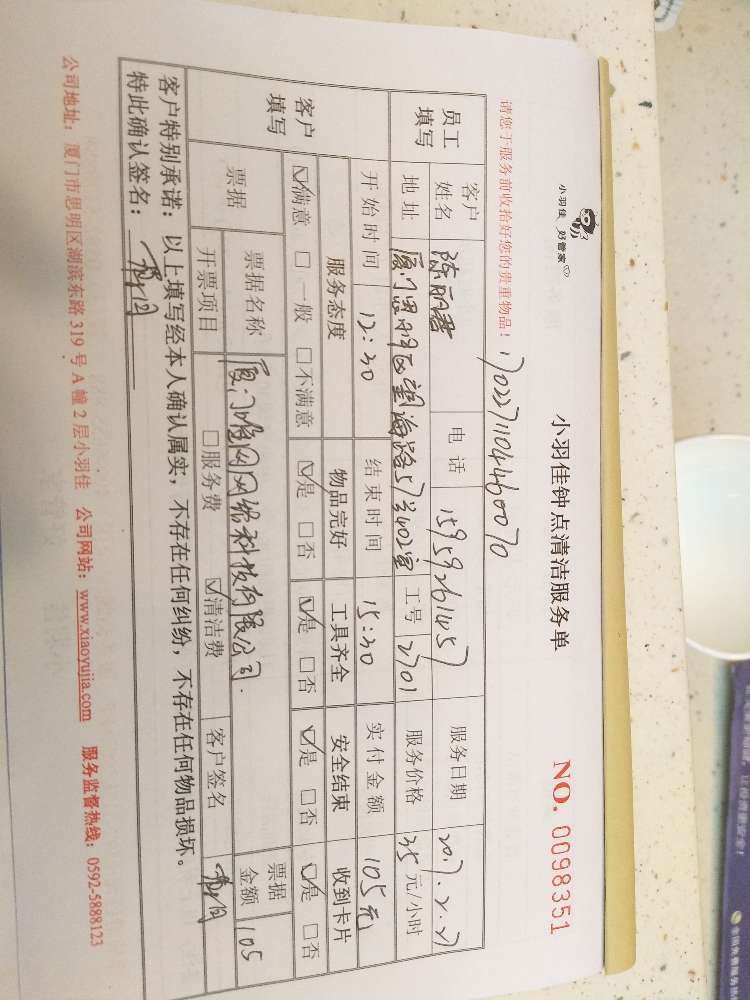 小羽佳 好管家
小羽佳钟点清洁服务单
NO. 0098351
请您于服务前收拾好您的贵重物品！
1702271104460070
员工填写
客户姓名 陈丽君 电话 15959261457 服务日期 2017.2.27
地址 厦门思明区望海路57号402室 工号 2701 服务价格 35 元/小时
开始时间 12:30 结束时间 15:30 实付金额 105元
客户填写
服务态度 物品完好 工具齐全 安全结束 收到卡片
☑满意 □一般 □不满意 ☑是 □否 ☑是 □否 ☑是 □否 ☑是 □否
票据 票据名称 网络科技有限公司. 票据金额 105
开票项目 □服务费 ☑清洁费 客户签名
客户特别承诺：以上填写经本人确认属实，不存在任何纠纷，不存在任何物品损坏。
特此确认签名：
公司地址：厦门市思明区湖滨东路 319 号 A 幢 2 层小羽佳 公司网站：www.xiaoyujia.com 服务监督热线：0592-5888123